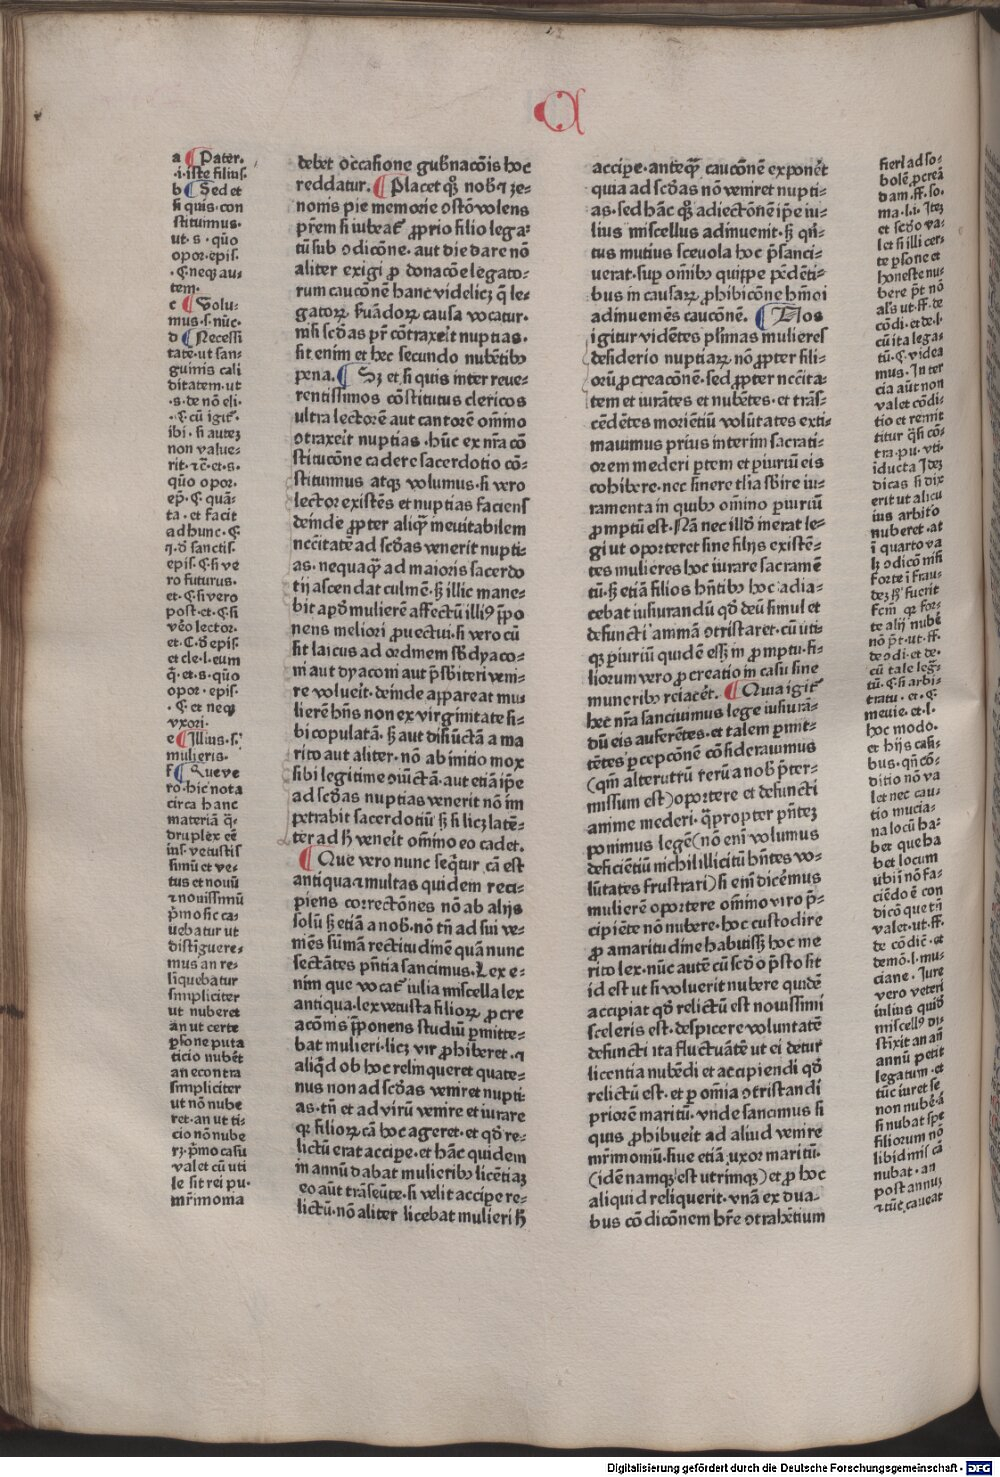 A
a ¶ Pater.
.i. iste filius.
b ¶ Sed et
si quis con
stituimus.
ut .s. quō
opor. epis.
.C. neqꝫ au-
tem.
c ¶ Volu-
mus .s. nūc.
d ¶ Necessi
tatē. ut san-
guinis cali
ditatem. ut
.s. de nō eli.
.C. cū igit᷑.
ibi. si autez
non value-
rit. ⁊c̄. et .s.
quō opor.
ep̄. C. quā-
ta. et facit
ad hunc. C.
epis. C. si ve
ro futurus.
et. C. si vero
post. et. C. si
vēo lector.
et cle. l. eum
q̄. et .s. quō
opor. epis.
.C. et neqꝫ
vxori.
e ¶ Illius .s.
mulieris.
f ¶ Que ve
ro. hic nota
circa hanc
materiā q̄-
druplex eē
ius. vetustis
simū et ve-
tus et nouū
⁊ nouissimū
p̄mo sic ca-
uebatur ut
distīguere-
mus an re-
liquebatur
simpliciter
ut nuberet
an ut certe
p̲sone puta
ticio nubēt
an econtra
simpliciter
ut nō nube
ret. an ut ti-
cio nō nube
rꝫ. p̄mo casu
valet cū uti
le sit rei pu.
mr̄imonia
debet occasione gub̄nacōis hoc
reddatur. ¶ Placet qꝫ nob̄ ⁊ ze-
nonis pie memorie ɔstō volens
pr̄em si iubeat᷑ ꝓprio filio lega-
tū sub ɔdicōne. aut die dare nō
aliter exigi ꝓ donacōe legato-
rum caucōnē hanc videlicꝫ q̄ le-
gatoꝝ ẜuādoꝝ causa vocatur.
nisi scd̄as pr̄ cōtraxeit nuptias.
sit enim et hec secundo nubētibꝰ
pena. ¶ Sꝫ et si quis inter reue-
rentissimos cōstitutus clericos
ultra lectorē aut cantorē oīno
ɔtraxeit nuptias. hūc ex nr̄a cō
stitucōne cadere sacerdotio cō-
stituimus atqꝫ volumus. si vero
lector existēs et nuptias faciens
deinde ꝓpter aliqᷓ ineuitabilem
nccītatē ad scd̄as venerit nupti-
as. nequaqᷓ ad maioris sacerdo
tij ascendat culmē. sꝫ illic mane-
bit apd̄ mulierē affectū illiꝰ p̄po
nens meliori ꝓuectui. si vero cū
sit laicus ad ordinem sb̄dyaco-
ni aut dyaconi aut p̄sbiteri veni-
re volueit. deinde appareat mu
lierē hn̄s non ex virginitate si-
bi copulatā. sꝫ aut disiūctā a ma
rito aut aliter. nō ab inicio mox
sibi legitime ɔiūctā. aut etiā ip̄e
ad scd̄as nuptias venerit nō im
petrabit sacerdotiū sꝫ si licꝫ latē-
ter ad h̄ veneit oīno eo cadet.
¶ Que vero nunc seq̄tur cā est
antiqua ⁊ multas quidem reci-
piens correctōnes nō ab alijs
solū sꝫ etiā a nob̄. nō tn̄ ad sui ve-
niēs sūmā rectitudinē quā nunc
sectātes pn̄tia sancimus. Lex e-
nim que vocat᷑ iulia miscella lex
antiqua. lex vetusta filioꝝ ꝓcre
acōnis p̄ponens studiū p̲mitte-
bat mulieri. licꝫ vir ꝓhiberet. ⁊
aliqͥd ob hoc relinqueret quate-
nus non ad scd̄as veniret nupti
as. tn̄ et ad virū venire et iurare
qꝛ filioꝝ cā hoc ageret. et qd̄ re-
lictū erat accipe. et hāc quidem
in annū dabat mulieribꝰ licētiaꝫ
eo aūt trāseūte. si velit accipere re-
lictū. nō aliter licebat mulieri h̄
accipe. anteqᷓ caucōnē exponēt
quia ad scd̄as nō veniret nupti-
as. sed hāc qꝫ adiectōnē ip̄e iu-
lius miscellus adinuenit. sꝫ qn̄-
tus mutius sceuola hoc p̄sanci-
uerat. sup oīnibꝰ quippe pēdēti-
bus in causaꝝ ꝓhibicōne hmōi
adinueniēs caucōnē. ¶ Nos
igitur vidētes pl̄imas mulieres
desiderio nuptiaꝝ nō ꝓpter fili-
orū ꝓcreacōnē. sed ꝓpter nccīta-
tem et iurātes et nubētes. et trās-
cēdētes moriētiū volūtates exti-
mauimus prius interim sacrati-
orem mederi p̲tem et p̲iuriū eis
cohibere. nec sinere tlia sbire iu-
ramenta in quibꝰ oīno p̲iuriū
ꝓmptū est. Nā nec illd̄ inerat le-
gi ut oporteret sine filijs existē-
tes mulieres hoc iurare sacramē
tū. sꝫ etiā filios hn̄tibꝰ hoc adia-
cebat iusiurandū qd̄ deū simul et
defuncti animā ɔtristaret. cū uti-
qꝫ p̲iuriū quidē essꝫ in ꝓmptu. fi-
liorum vero ꝓcreatio in casu sine
muneribꝰ reiacēt. ¶ Quia igit᷑
hec nr̄a sanciuimus lege iusiurā-
dū eis auferētes. et talem p̲mit-
tētes p̲cepcōnē cōsiderauimus
(qm̄ alterutrū rerū a nob̄ p̄ter-
missum est) oportere et defuncti
anime mederi. qᷓpropter pn̄tez
ponimus legē (nō eni volumus
deficiētiū nichil illicitū hn̄tes vo-
lūtates frustrari) si eni dicēmus
mulierē oportere oīno viro p̄-
cipiēte nō nubere. hoc custodire
ꝓ amaritudine habuissꝫ hoc me
rito lex. nūc autē cū scd̄o ɔp̄sto sit
id est ut si voluerit nubere quidē
accipiat qd̄ relictū est nouissimi
sceleris est. despicere voluntatē
defuncti ita fluctuātē ut ei detur
licentia nubēdi et accipiendi qd̄
relictū est. et p̲ oīnia ɔtristandi
priorē maritū. vnde sancimus si
quis ꝓhibueit ad aliud venire
mr̄imoniū. siue etiā uxor maritū.
(idē namqꝫ est utrimqꝫ) et ꝓ hoc
aliquid reliquerit. vnā ex dua-
bus cōdiconem hr̄e ɔtrahētium
fieri ad so-
bolē ꝓcreā
dam. ff. so.
ma. l. i. Itez
et scd̄o va-
let si illi cer-
te p̲sone et
honeste nu-
bere p̄t nō
als ut. ff. de
cōdi. et de. l.
cū ita lega-
tū. C. videa
mus. In ter
cia aūt non
valet cōdi-
tio et remit
titur q̄si cō-
tra. pu. vti.
iducta Idez
dicas si dix
erit ut alicu
ius arbito
nuberet. at
ī quarto va
lꝫ ɔdicō nisi
forte ī frau-
dez sꝫ fuerit
fcm̄ qꝛ for-
te alij nubē
nō p̄t. ut. ff.
de ɔdi. et de.
cū tale legᷓ-
tū. C. si arbi-
tratu. et. C.
meuie. et. l.
hoc modo.
et hijs casi-
bus. qn̄ cō-
ditio nō va
let nec cau-
tio mucia-
na locū ha-
bet que ha
bet locum
ubi nō fa-
ciēdo ē con
dicō que tn̄
valet. ut. ff.
de cōdic̄. et
demō. l. mu-
ciane. Iure
vero veteri
iulius quid̄
miscellꝰ di-
stīxit an añ
annū petit
legatum. et
tūc iuret se
non nubē. a
si nubat spe
filiorum nō
libidinis cā
nubat. an
post annuꝫ
⁊ tūc caueat
Digitalisierung gefördert durch die Deutsche Forschungsgemeinschaft - DFG